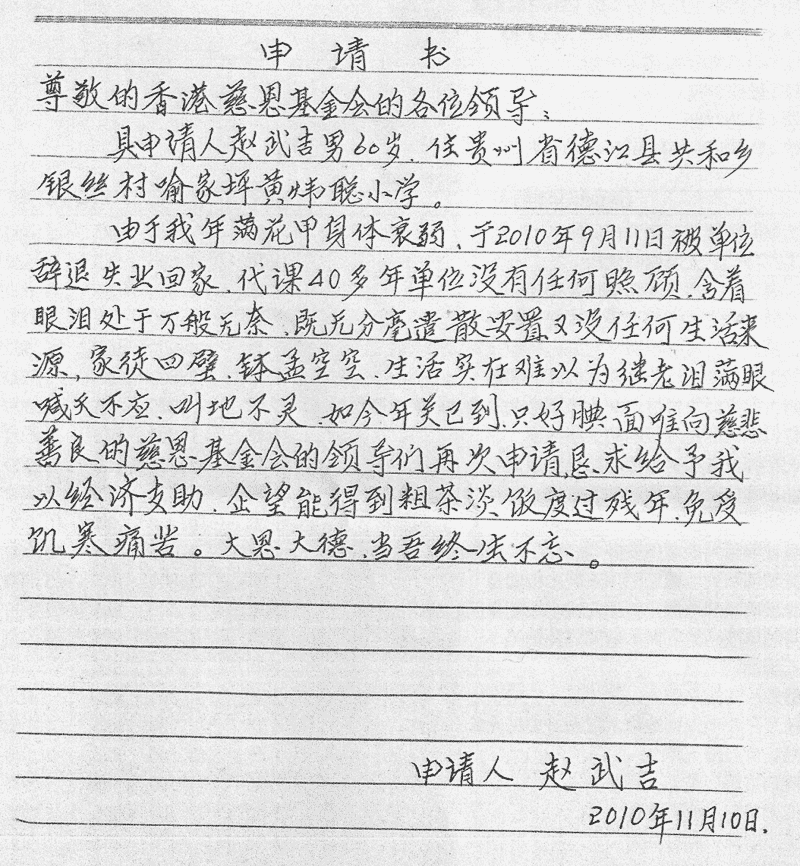 申请书
尊敬的香港慈恩基金会的各位领导：
具申请人赵武吉男60岁，住贵州省德江县共和乡
银丝村喻家坪黄炜聪小学。
由于我年满花甲身体衰弱，于2010年9月11日被单位
辞退失业回家，代课40多年单位没有任何照顾，含着
眼泪处于万般无奈，既无分毫遣散安置又没任何生活来
源，家徒四壁，钵孟空空，生活实在难以为继老泪满眼
喊天不应，叫地不灵，如今年关已到，只好腆面唯向慈悲
善良的慈恩基金会的领导们再次申请，恳求给予我
以经济支助，企望能得到粗茶淡饭度过残年，免受
饥寒痛苦。大恩大德，当吾终生不忘。
申请人 赵武吉
2010年11月10日.